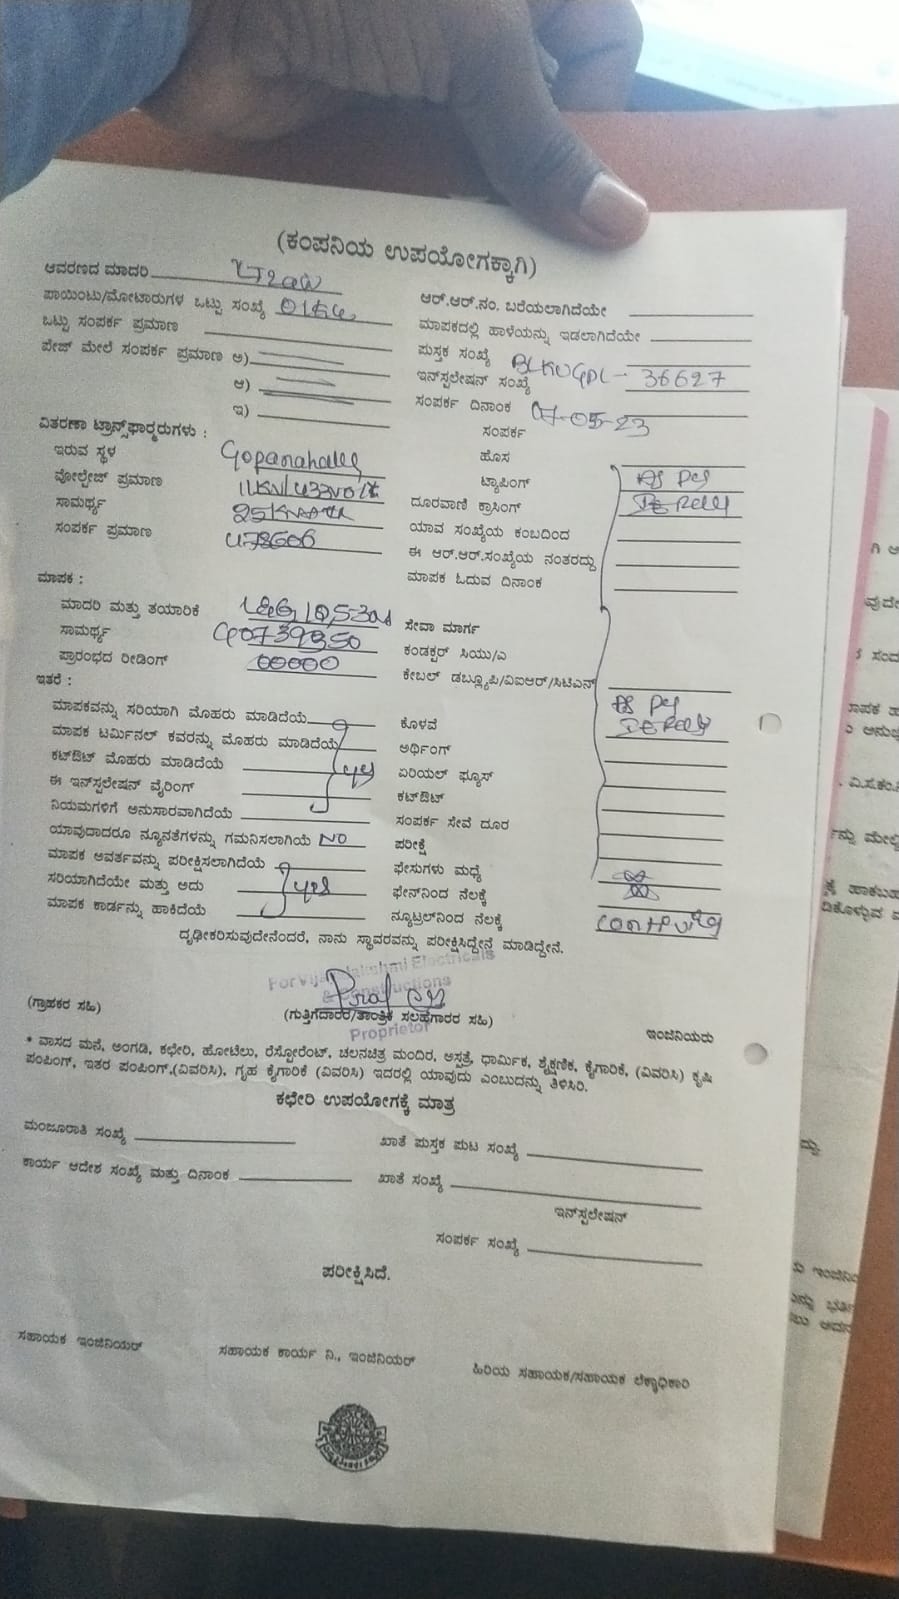 (ಕಂಪನಿಯ ಉಪಯೋಗಕ್ಕಾಗಿ)
ಆವರಣದ ಮಾದರಿ
ಪಾಯಿಂಟು/ಮೋಟಾರುಗಳ ಒಟ್ಟು ಸಂಖ್ಯೆ
ಆರ್.ಆರ್.ನಂ. ಬರೆಯಲಾಗಿದೆಯೇ
ಒಟ್ಟು ಸಂಪರ್ಕ ಪ್ರಮಾಣ
ಮಾಪಕದಲ್ಲಿ ಹಾಳೆಯನ್ನು ಇಡಲಾಗಿದೆಯೇ
ಪೇಜ್ ಮೇಲೆ ಸಂಪರ್ಕ ಪ್ರಮಾಣ ಅ)
ಪುಸ್ತಕ ಸಂಖ್ಯೆ
ಆ)
ಇನ್‌ಸ್ಪಲೇಷನ್ ಸಂಖ್ಯೆ 36627
ಇ)
ಸಂಪರ್ಕ ದಿನಾಂಕ 07-05-23
ವಿತರಣಾ ಟ್ರಾನ್ಸ್‌ಫಾರ್ಮರುಗಳು :
ಸಂಪರ್ಕ
ಇರುವ ಸ್ಥಳ Gopanahally
ಹೊಸ
ವೋಲ್ಟೇಜ್ ಪ್ರಮಾಣ 11KV/433Volt
ಟ್ಯಾಪಿಂಗ್ As per
ಸಾಮರ್ಥ್ಯ
ದೂರವಾಣಿ ಕ್ರಾಸಿಂಗ್
ಸಂಪರ್ಕ ಪ್ರಮಾಣ
ಯಾವ ಸಂಖ್ಯೆಯ ಕಂಬದಿಂದ
ಈ ಆರ್.ಆರ್.ಸಂಖ್ಯೆಯ ನಂತರದ್ದು
ಮಾಪಕ :
ಮಾಪಕ ಓದುವ ದಿನಾಂಕ
ಮಾದರಿ ಮತ್ತು ತಯಾರಿಕೆ
ಸೇವಾ ಮಾರ್ಗ
ಸಾಮರ್ಥ್ಯ
ಕಂಡಕ್ಟರ್ ಸಿಯು/ಎ
ಪ್ರಾರಂಭದ ರೀಡಿಂಗ್ 00000
ಕೇಬಲ್ ಡಬ್ಲ್ಯೂಪಿ/ವಿಐಆರ್/ಸಿಟಿಎಸ್
ಇತರೆ :
As per
ಮಾಪಕವನ್ನು ಸರಿಯಾಗಿ ಮೊಹರು ಮಾಡಿದೆಯೆ
ಕೊಳವೆ
ಮಾಪಕ ಟರ್ಮಿನಲ್ ಕವರನ್ನು ಮೊಹರು ಮಾಡಿದೆಯೆ
ಅರ್ಥಿಂಗ್
ಕಟ್‌ಔಟ್ ಮೊಹರು ಮಾಡಿದೆಯೆ yes
ಏರಿಯಲ್ ಫ್ಯೂಸ್
ಈ ಇನ್‌ಸ್ಪಲೇಷನ್ ವೈರಿಂಗ್
ಕಟ್‌ಔಟ್
ನಿಯಮಗಳಿಗೆ ಅನುಸಾರವಾಗಿದೆಯೆ
ಸಂಪರ್ಕ ಸೇವೆ ದೂರ
ಯಾವುದಾದರೂ ನ್ಯೂನತೆಗಳನ್ನು ಗಮನಿಸಲಾಗಿಯೆ NO
ಪರೀಕ್ಷೆ
ಮಾಪಕ ಅವರ್ತವನ್ನು ಪರೀಕ್ಷಿಸಲಾಗಿದೆಯೆ
ಫೇಸುಗಳು ಮಧ್ಯೆ
ಸರಿಯಾಗಿದೆಯೇ ಮತ್ತು ಅದು yes
ಫೇಸ್‌ನಿಂದ ನೆಲಕ್ಕೆ
ಮಾಪಕ ಕಾರ್ಡನ್ನು ಹಾಕಿದೆಯೆ
ನ್ಯೂಟ್ರಲ್‌ನಿಂದ ನೆಲಕ್ಕೆ
ದೃಢೀಕರಿಸುವುದೇನೆಂದರೆ, ನಾನು ಸ್ಥಾವರವನ್ನು ಪರೀಕ್ಷಿಸಿದ್ದೇನೆ ಮಾಡಿದ್ದೇನೆ.
Electricals
(ಗ್ರಾಹಕರ ಸಹಿ)
(ಗುತ್ತಿಗೆದಾರರ/ತಾಂತ್ರಿಕ ಸಲಹೆಗಾರರ ಸಹಿ)
Proprietor
ಇಂಜಿನಿಯರು
* ವಾಸದ ಮನೆ, ಅಂಗಡಿ, ಕಛೇರಿ, ಹೋಟೆಲು, ರೆಸ್ಟೋರೆಂಟ್, ಚಲನಚಿತ್ರ ಮಂದಿರ, ಆಸ್ಪತ್ರೆ, ಧಾರ್ಮಿಕ, ಶೈಕ್ಷಣಿಕ, ಕೈಗಾರಿಕೆ, (ವಿವರಿಸಿ) ಕೃಷಿ
ಪಂಪಿಂಗ್, ಇತರ ಪಂಪಿಂಗ್,(ವಿವರಿಸಿ), ಗೃಹ ಕೈಗಾರಿಕೆ (ವಿವರಿಸಿ) ಇದರಲ್ಲಿ ಯಾವುದು ಎಂಬುದನ್ನು ತಿಳಿಸಿರಿ.
ಕಛೇರಿ ಉಪಯೋಗಕ್ಕೆ ಮಾತ್ರ
ಮಂಜೂರಾತಿ ಸಂಖ್ಯೆ
ಖಾತೆ ಪುಸ್ತಕ ಪುಟ ಸಂಖ್ಯೆ
ಕಾರ್ಯ ಆದೇಶ ಸಂಖ್ಯೆ ಮತ್ತು ದಿನಾಂಕ
ಖಾತೆ ಸಂಖ್ಯೆ
ಇನ್‌ಸ್ಪಲೇಷನ್
ಸಂಪರ್ಕ ಸಂಖ್ಯೆ
ಪರೀಕ್ಷಿಸಿದೆ.
ಸಹಾಯಕ ಇಂಜಿನಿಯರ್
ಸಹಾಯಕ ಕಾರ್ಯ ನಿ., ಇಂಜಿನಿಯರ್
ಹಿರಿಯ ಸಹಾಯಕ/ಸಹಾಯಕ ಲೆಕ್ಕಾಧಿಕಾರಿ